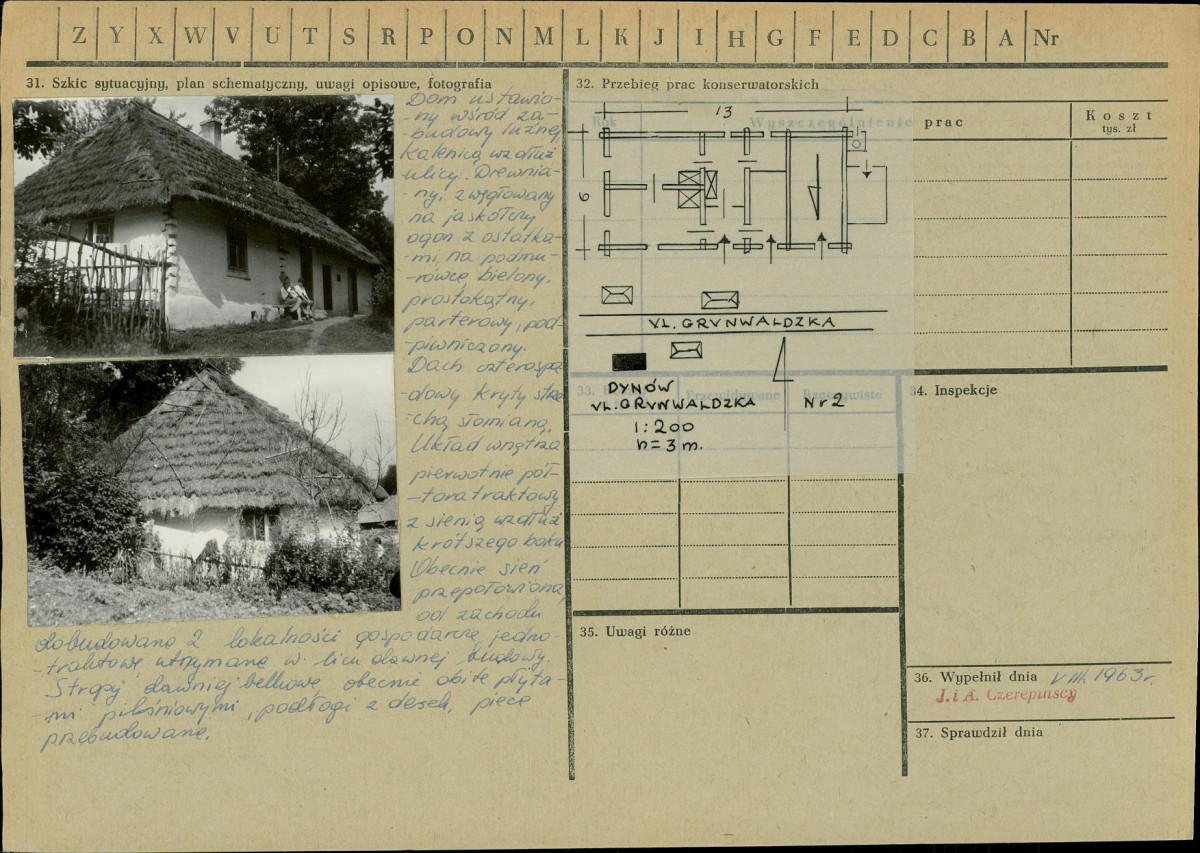 Z Y X W V U T S R P O N M L K J I H G F E D C B A Nr
31. Szkic sytuacyjny, plan schematyczny, uwagi opisowe, fotografia
Dom ustawio-
-ny wśród za-
-budowy luźnej,
kalenicą wzdłuż
ulicy. Drewnia-
-ny, zwęgłowany
na jaskółczy
ogon z ostatka-
-mi, na podmu-
-rówce, bielony,
prostokątny,
parterowy, pod-
-piwniczony.
Dach czterospa-
-dowy kryty strze-
-chą słomianą.
Układ wnętrza
pierwotnie pół-
-toratraktowy
z sienią wzdłuż
krótszego boku
Obecnie sień
przepołowiona,
od zachodu
dobudowano 2 lokalności gospodarcze, jedno-
-traktowe utrzymane w licu dawnej budowy.
Stropy dawniej belkowe, obecnie obite płyta-
-mi pilśniowymi, podłogi z desek, piece
przebudowane.
32. Przebieg prac konserwatorskich
Rok
Wyszczególnienie
prac
Koszt
tys. zł
13
6
UL. GRUNWALDZKA
DYNÓW
UL. GRUNWALDZKA Nr 2
1:200
h = 3 m.
33.
Przewidywane
Rzeczywiste
34. Inspekcje
35. Uwagi różne
36. Wypełnił dnia VIII. 1963 r.
J. i A. Czerepińscy
37. Sprawdził dnia